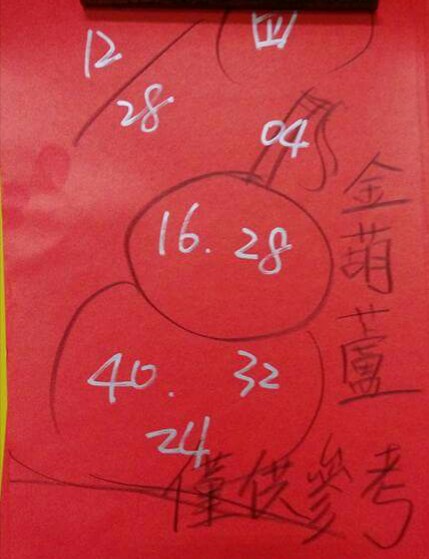 12/28
四
04
16. 28
40. 32
24
金葫蘆
僅供參考